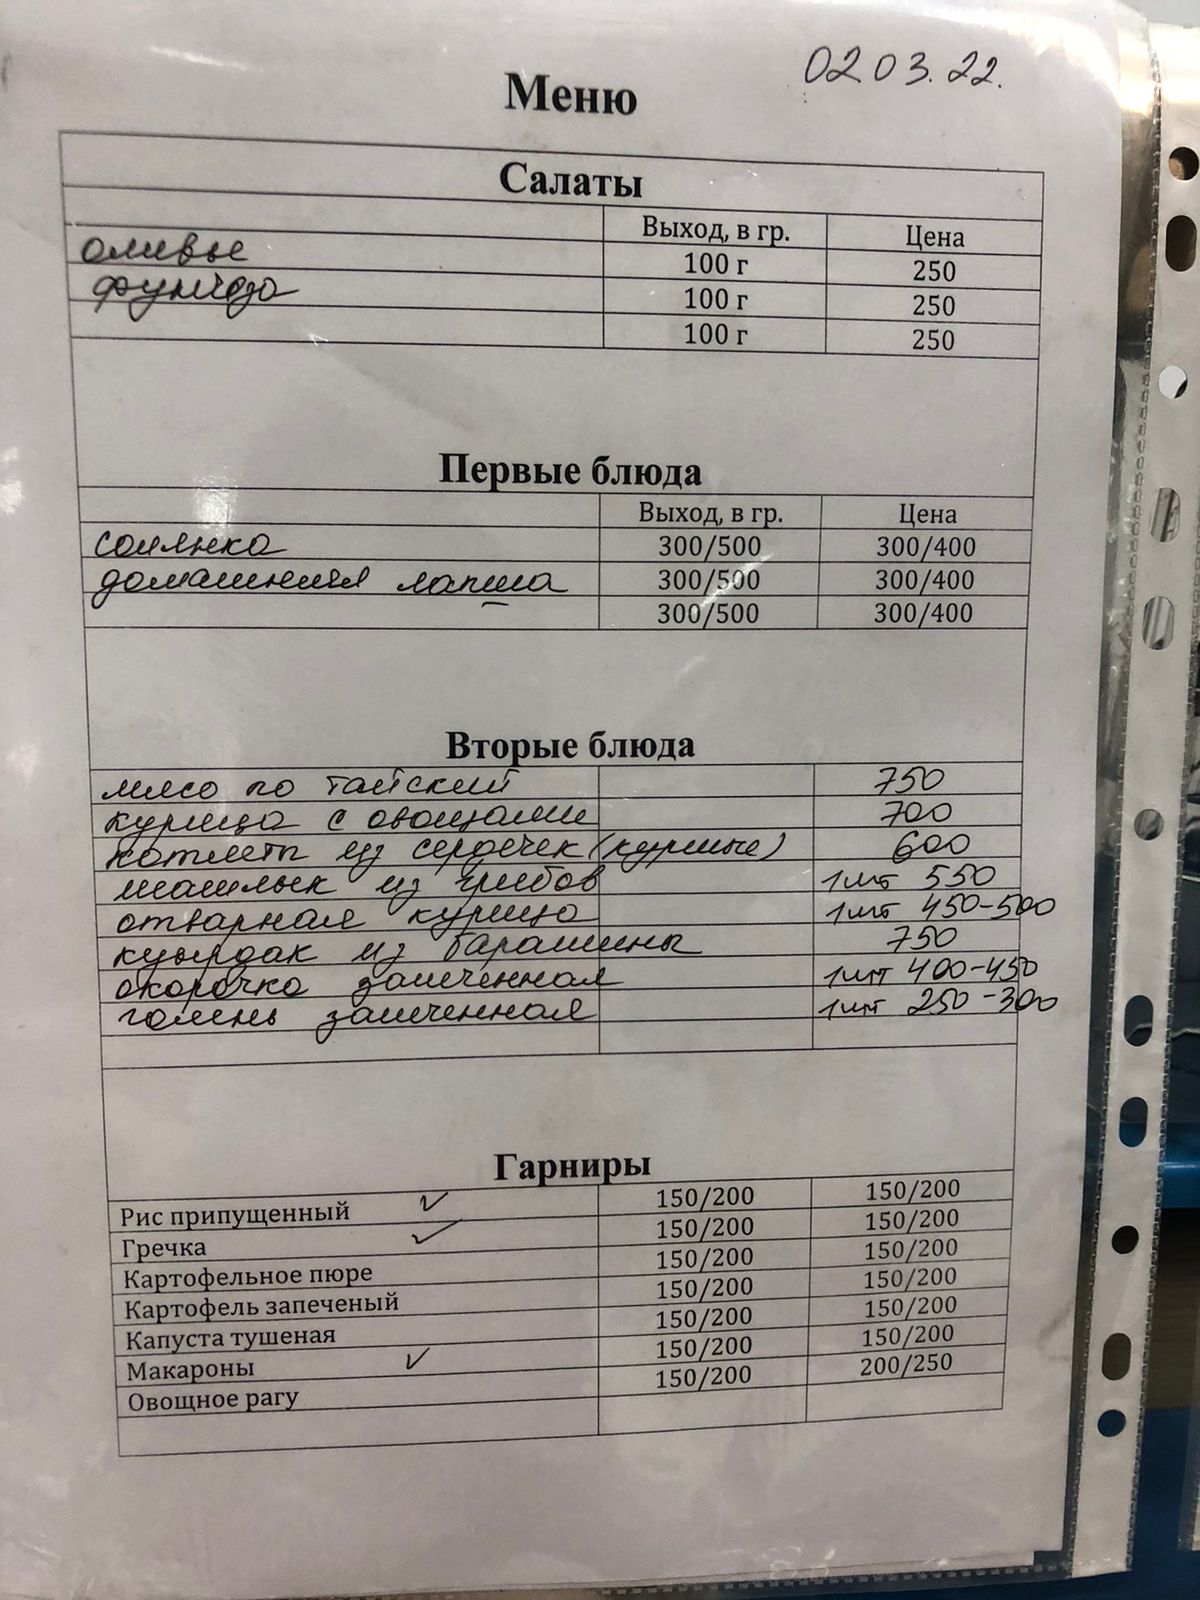 02 03. 22.
Меню
Салаты
Выход, в гр. Цена
оливье 100 г 250
фунчоза 100 г 250
100 г 250
Первые блюда
Выход, в гр. Цена
солянка 300/500 300/400
домашняя лапша 300/500 300/400
300/500 300/400
Вторые блюда
мясо по тайский 750
курица с овощами 700
котлеты из сердечек (куриные) 600
шашлык из грибов 1 шт 550
отварная курица 1 шт 450-500
куырдак из баранины 750
окорочка запеченная 1 шт 400-450
голень запеченная 1 шт 250-300
Гарниры
Рис припущенный ✓ 150/200 150/200
Гречка ✓ 150/200 150/200
Картофельное пюре 150/200 150/200
Картофель запеченый 150/200 150/200
Капуста тушеная 150/200 150/200
Макароны ✓ 150/200 150/200
Овощное рагу 150/200 200/250